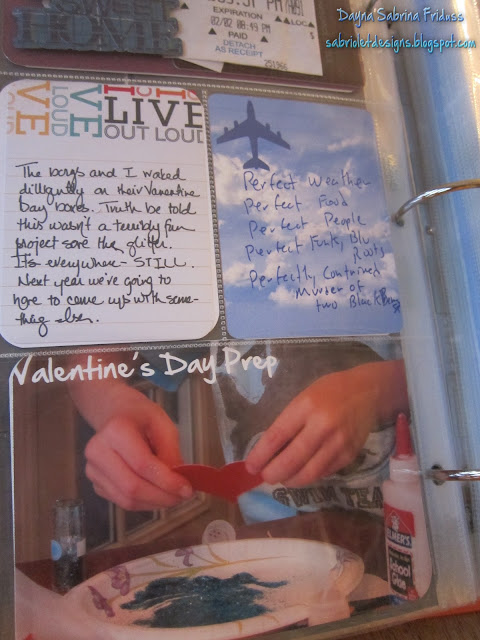 Dayna Sabrina Friduss
sabrioletdesigns.blogspot.com
HOME
EXPIRATION
02/02 08:49 PM
LOC
PAID
DETACH
AS RECEIPT
LOUD
LIVE
LIVE
OUT LOUD
The boys and I worked
dilligently on their Valentine
Day boxes. Truth be told
this wasn't a terribly fun
project save the glitter.
It's everywhere - STILL.
Next year we're going to
have to come up with some-
thing else.
Perfect Weather
Perfect Food
Perfect People
Perfect Funky Blu
Roots
Perfectly Contrived
Murder of
two Black
Valentine's Day Prep
SWIM TEAM
ELMER'S
School
Glue